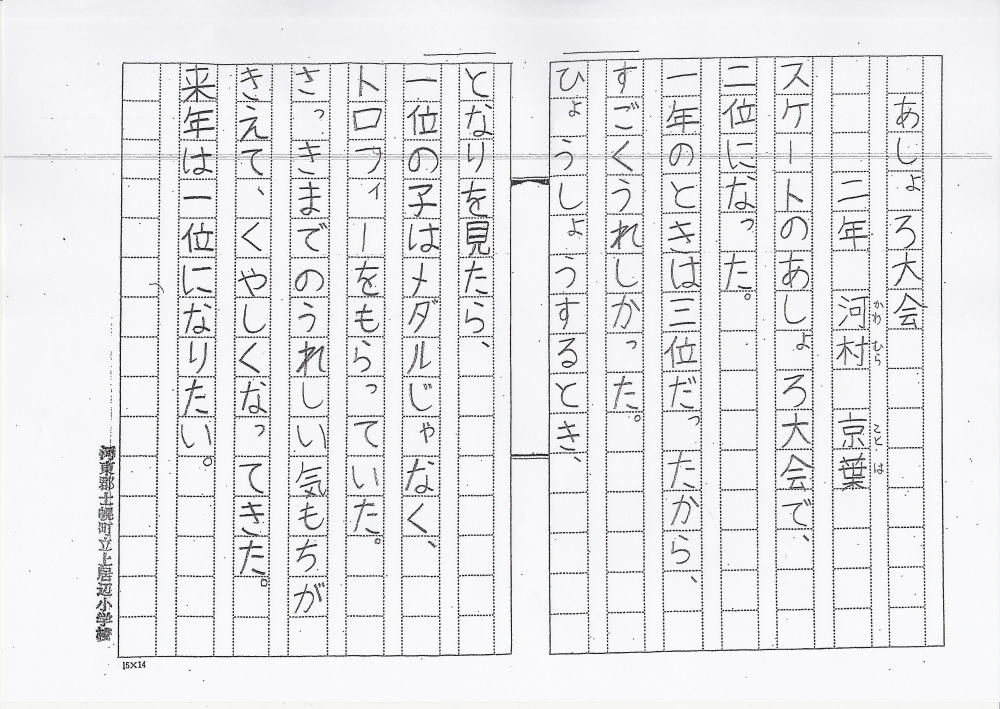 あしょろ大会
二年　河村　京葉
かわ むら こと は
スケートのあしょろ大会で、
二位になった。
一年のときは三位だったから、
すごくうれしかった。
ひょうしょうするとき、
となりを見たら、
一位の子はメダルじゃなく、
トロフィーをもらっていた。
さっきまでのうれしい気もちが
きえて、くやしくなってきた。
来年は一位になりたい。
河東郡士幌町立上居辺小学校
15×14